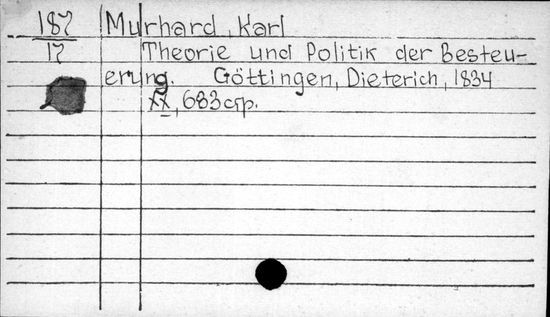 187 Murhard, Karl
17 Theorie und Politik der Besteu-
erung. Göttingen, Dieterich, 1834
XX, 683 стр.